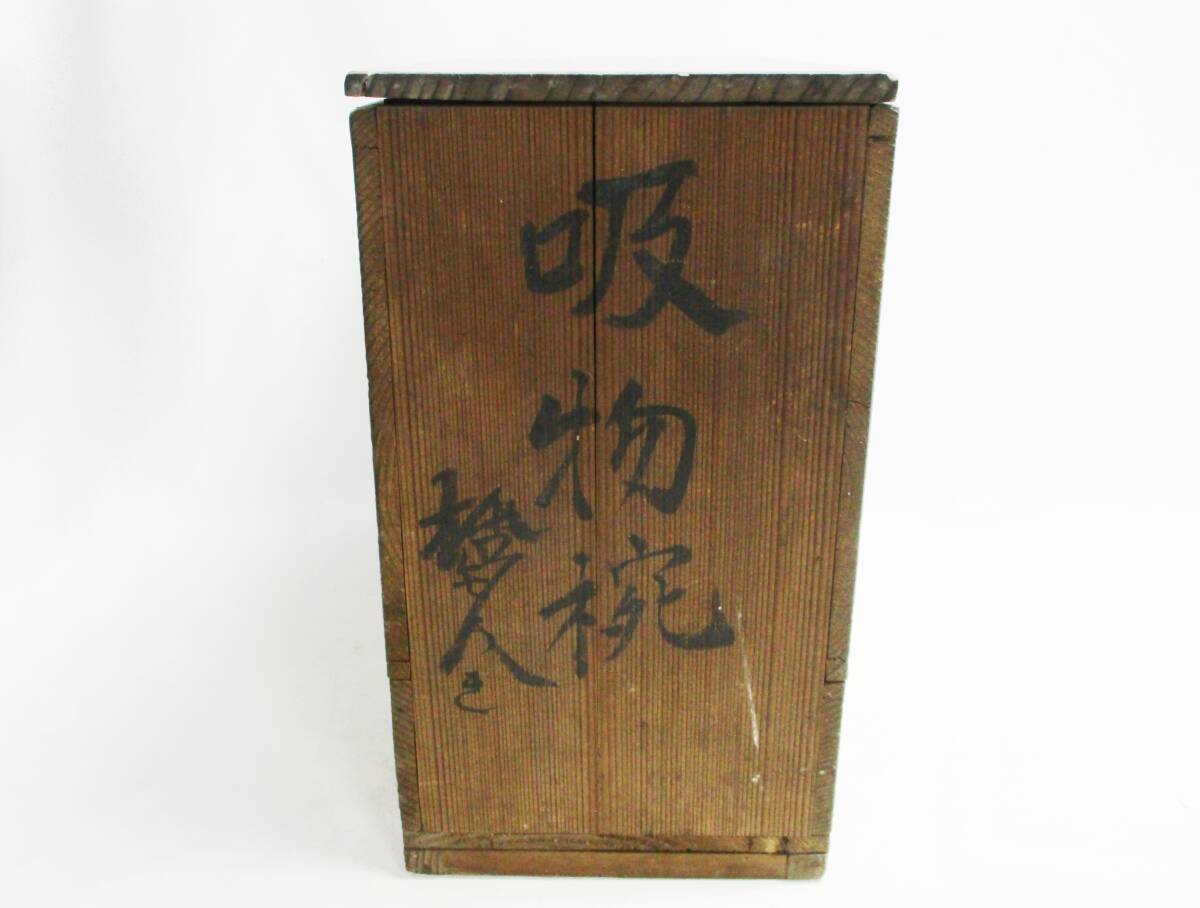 吸物椀
拾人前